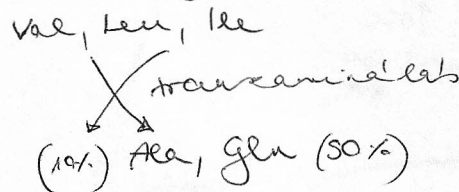 Val, Leu, Ile
transzaminálás
(10%) Ala, Gln (50%)